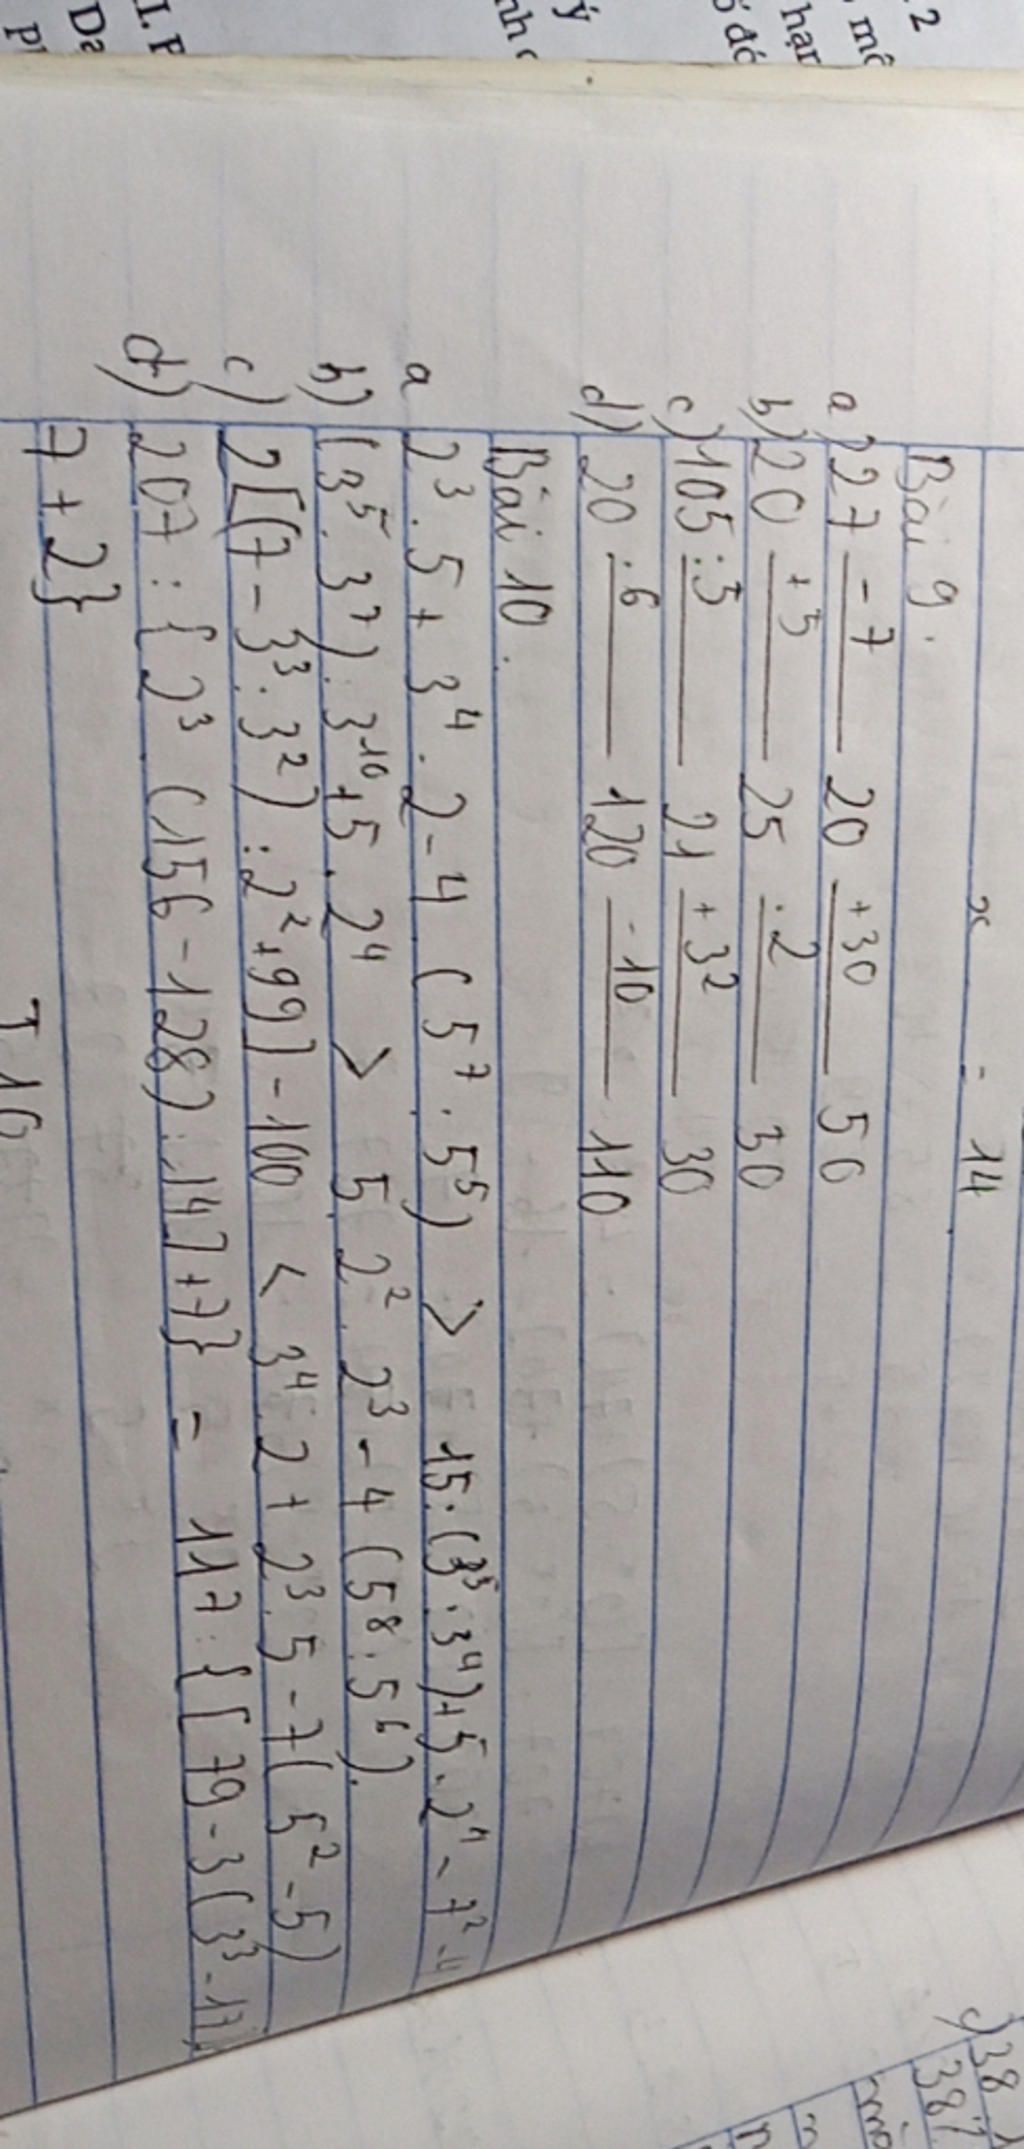 x = 14
Bài 9.
a) 27 -7 20 +30 50
b) 20 +5 25 .2 30
c) 105 :5 21 +3² 30
d) 20 .6 120 -10 110
Bài 10.
a 2³.5+3⁴.2-4(5⁷:5⁵) > 15:(3⁵:3⁴)+5.2⁴-7²
b) (3⁵.3⁷):3¹⁰+5.2⁴ > 5.2².2³-4(5⁸:5⁶).
c) 2[(7-3³:3²):2²+99]-100 < 3⁴.2+2³.5-7(5²-5)
d) 207:{2³.(156-128):14]+7} = 117:{[79-3(3³-17)
7+2}
2
hạn
ố đó
ý
nh
I. P